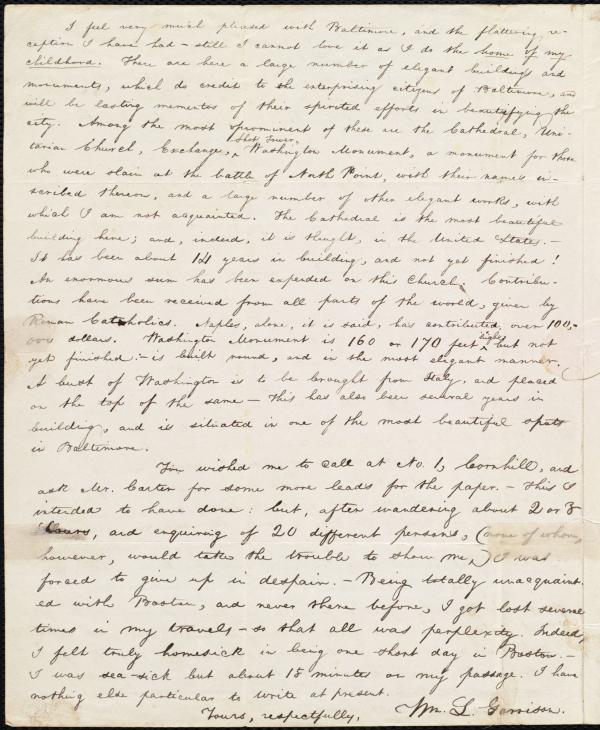 I feel very much pleased with Baltimore, and the flattering re-
ception I have had – still I cannot love it as I do the home of my
childhood. There are here a large number of elegant buildings and
monuments, which do credit to the enterprising citizens of Baltimore, and
will be lasting mementos of their spirited efforts in beautifying the
city. Among the most prominent of these are the Cathedral, Uni-
Shot Tower,
tarian Church, Exchange, ^ Washington Monument, a monument for those
who were slain at the battle of North Point, with their names in-
scribed thereon, and a large number of other elegant works, with
which I am not acquainted. The Cathedral is the most beautiful
building here; and, indeed, it is thought, in the United States. –
It has been about 14 years in building, and not yet finished!
An enormous sum has been expended on this Church. Contribu-
tions have been received from all parts of the world, given by
Roman Catholics. Naples, alone, it is said, has contributed over 100,-
000 dollars. Washington Monument is 160 or 170 feet ^ high, but not
yet finished: – is built round, and in the most elegant manner.
A bust of Washington is to be brought from Italy, and placed
on the top of the same – this has also been several years in
building, and is situated in one of the most beautiful spots
in Baltimore.
You wished me to call at No. 1, Cornhill, and
ask Mr. Carter for some more leads for the paper. – This I
intended to have done: but, after wandering about 2 or 3
hours, and enquiring of 20 different persons, (none of whom,
however, would take the trouble to show me,) I was
forced to give up in despair. – Being totally unacquaint-
ed with Boston, and never there before, I got lost several
times in my travels – so that all was perplexity. Indeed,
I felt truly homesick in being one short day in Boston. –
I was sea-sick but about 15 minutes on my passage. I have
nothing else particular to write at present.
Yours, respectfully, Wm. L. Garrison.